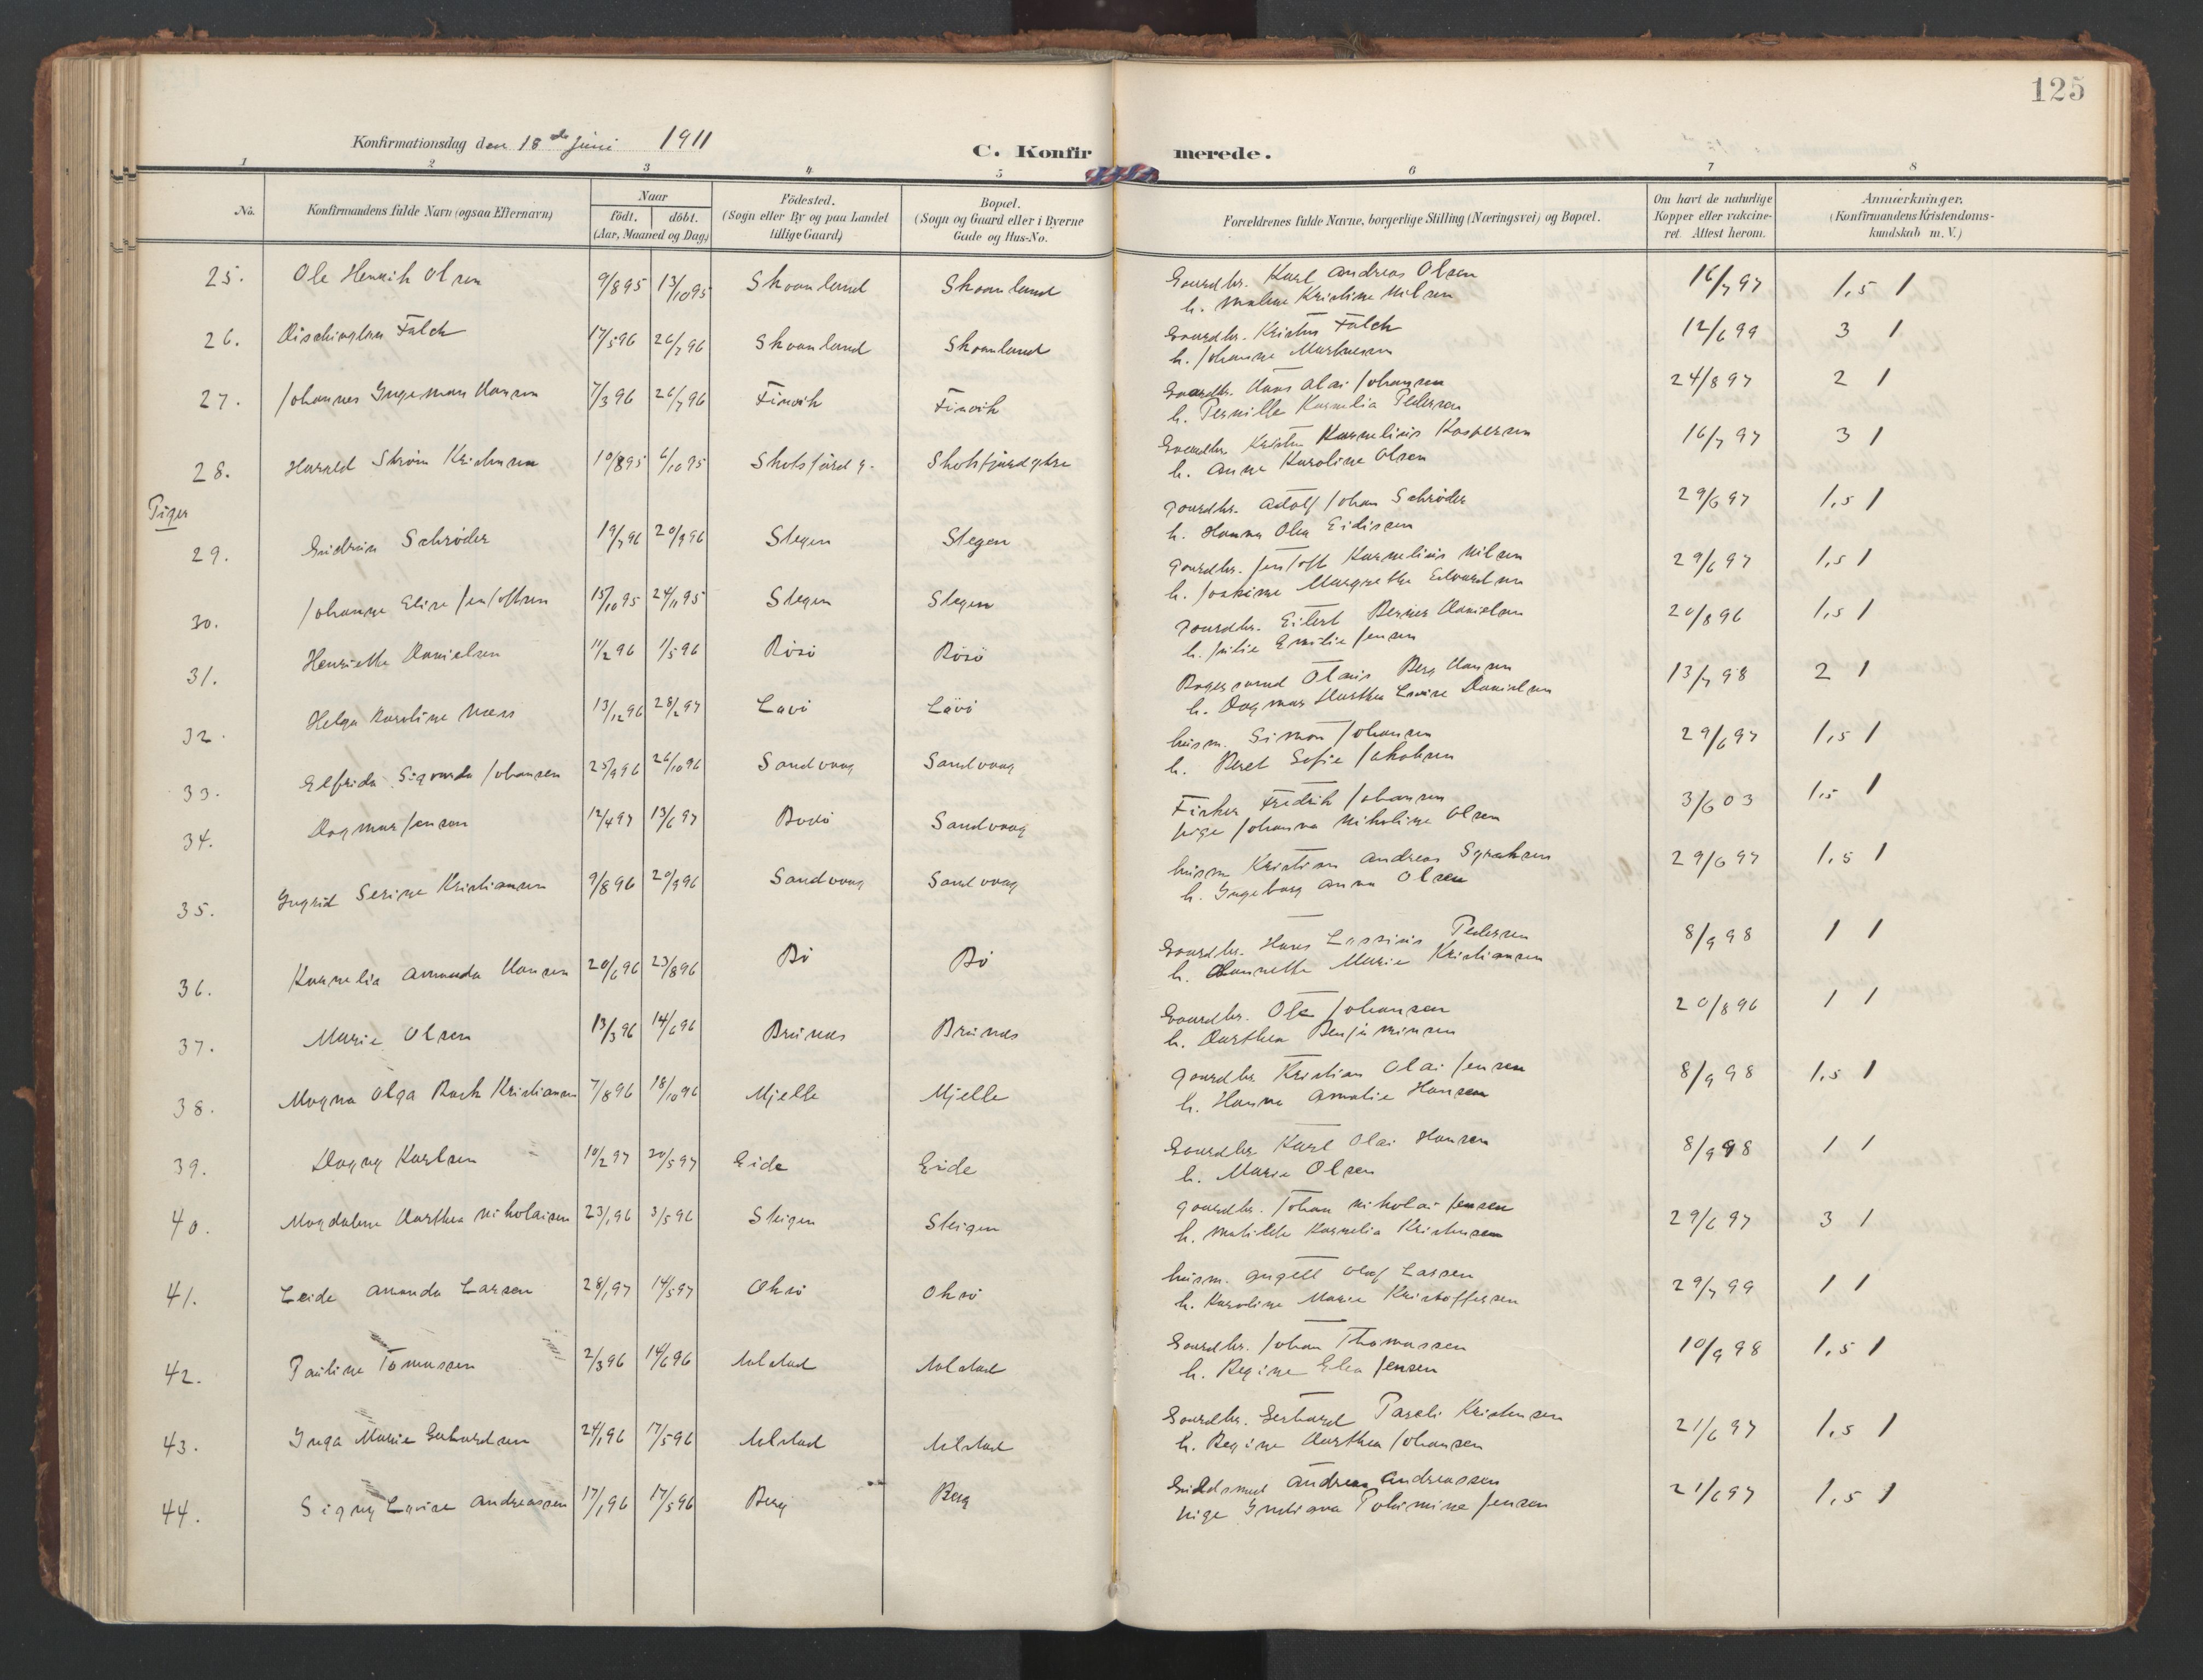 125
Konfirmationsdag den 18de Juni 1911
C. Konfirmerede.
1 2 3 4 5 6 7 8
No. Konfirmandens fulde Navn (ogsaa Efternavn) Naar født. døbt. (Aar, Maaned og Dag) Födested. (Sogn eller By og paa Landet tillige Gaard) Bopæl. (Sogn og Gaard eller i Byerne Gade og Hus-No. Forældrenes fulde Navne, borgerlige Stilling (Næringsvei) og Bopæl. Om havt de naturlige Kopper eller vakcineret. Attest herom. Anmærkninger. (Konfirmandens Kristendomskundskab m. V.)
25. Ole Henrik Olsen 9/8 95 13/10 95 Skaanland Skaanland Gaardbr. Karl Andreas Olsen 16/7 97 1,5 1
h. Maline Kristine Nilsen
26. Falch 17/5 96 26/7 96 Skaanland Skaanland Gaardbr. Falch 12/6 99 3 1
h. Johanne
27. Johannes Ingeman Hansen 7/3 96 26/7 96 Finvik Finvik Gaardbr. Hans Olai Johansen 24/8 97 2 1
h. Pernille Kornelia Pedersen
28. Harald Strøm Kristensen 10/8 95 6/10 95 Skotsfjord Gaardbr. Kornelius Kaspersen 16/7 97 3 1
h. Anne Karoline Olsen
Piger
29. Gudrun Schrøder 19/7 96 20/9 96 Stegen Stegen Gaardbr. Adolf Johan Schrøder 29/6 97 1,5 1
h. Hanna Olea Eidissen
30. Johanne Elise Jentoftsen 15/10 95 24/11 95 Stegen Stegen Gaardbr. Jentoft Kornelius Nilsen 29/6 97 1,5 1
h. Joakime Margrethe Edvardsen
31. Henriette Danielsen 11/2 96 1/5 96 Røsø Røsø Gaardbr. Eilert Danielsen 20/8 96 1,5 1
h. Julie Emilie Jensen
32. Helga Karoline Næss 13/12 96 28/2 97 Løvø Løvø Bagersvend Olaus Berg Hansen 13/7 98 2 1
h. Dagmar Marthea Lovise Danielsen
33. Elfrida Sigvarda Johansen 25/9 96 26/10 96 Sandvaag Sandvaag husm. Simon Johansen 29/6 97 1,5 1
h. Beret Sofie Jakobsen
34. Dagmar Jensen 12/4 97 13/6 97 Bodø Sandvaag Fisker Fredrik Johansen 3/6 03 1,5 1
pige Johanna Nikoline Olsen
35. Ingrid Serine Kristiansen 9/8 96 20/9 96 Sandvaag Sandvaag husm Kristian Andreas 29/6 97 1,5 1
h. Ingeborg Anna Olsen
36. Kornelia Amanda Hansen 20/6 96 23/8 96 Bø Bø Gaardbr. Hans Pedersen 8/9 98 1 1
h. Marie Kristiansen
37. Marie Olsen 13/3 96 14/6 96 Brunes Brunes Gaardbr. Ole Johansen 20/8 96 1 1
h. Benjaminsen
38. Magna Olga Kristiansen 7/8 96 18/10 96 Mjelle Mjelle Gaardbr Kristian Olai Jensen 8/9 98 1,5 1
h. Hanna Amalie Hansen
39. Dagny Karlsen 10/2 97 20/5 97 Eide Eide Gaardbr Karl Olai Hansen 8/9 98 1 1
h. Marie Olsen
40. Magdalene Marthea Nikolaisen 23/1 96 3/5 96 Steigen Steigen Gaardbr. Johan Nikolai Jensen 29/6 97 3 1
h. Matilde Kornelia Kristensen
41. Leide Amanda Larsen 28/1 97 14/5 97 Oksø Oksø husm. Olaf Larsen 29/7 99 1 1
h. Karoline Marie Kristoffersen
42. Pauline Tomassen 2/3 96 14/6 96 Alstad Alstad Gaardbr. Johan Thomassen 10/9 98 1,5 1
h. Regine Elea Jensen
43. Inga Marie Gerhardsen 24/1 96 17/5 96 Alstad Alstad Gaardbr. Gerhard Pareli Kristensen 21/6 97 1,5 1
h. Regine Marthea Johansen
44. Signy Lovise Andreassen 17/1 96 17/5 96 Berg Berg Guldsmed Andreas Andreassen 21/6 97 1,5 1
pige Indiana Jensen